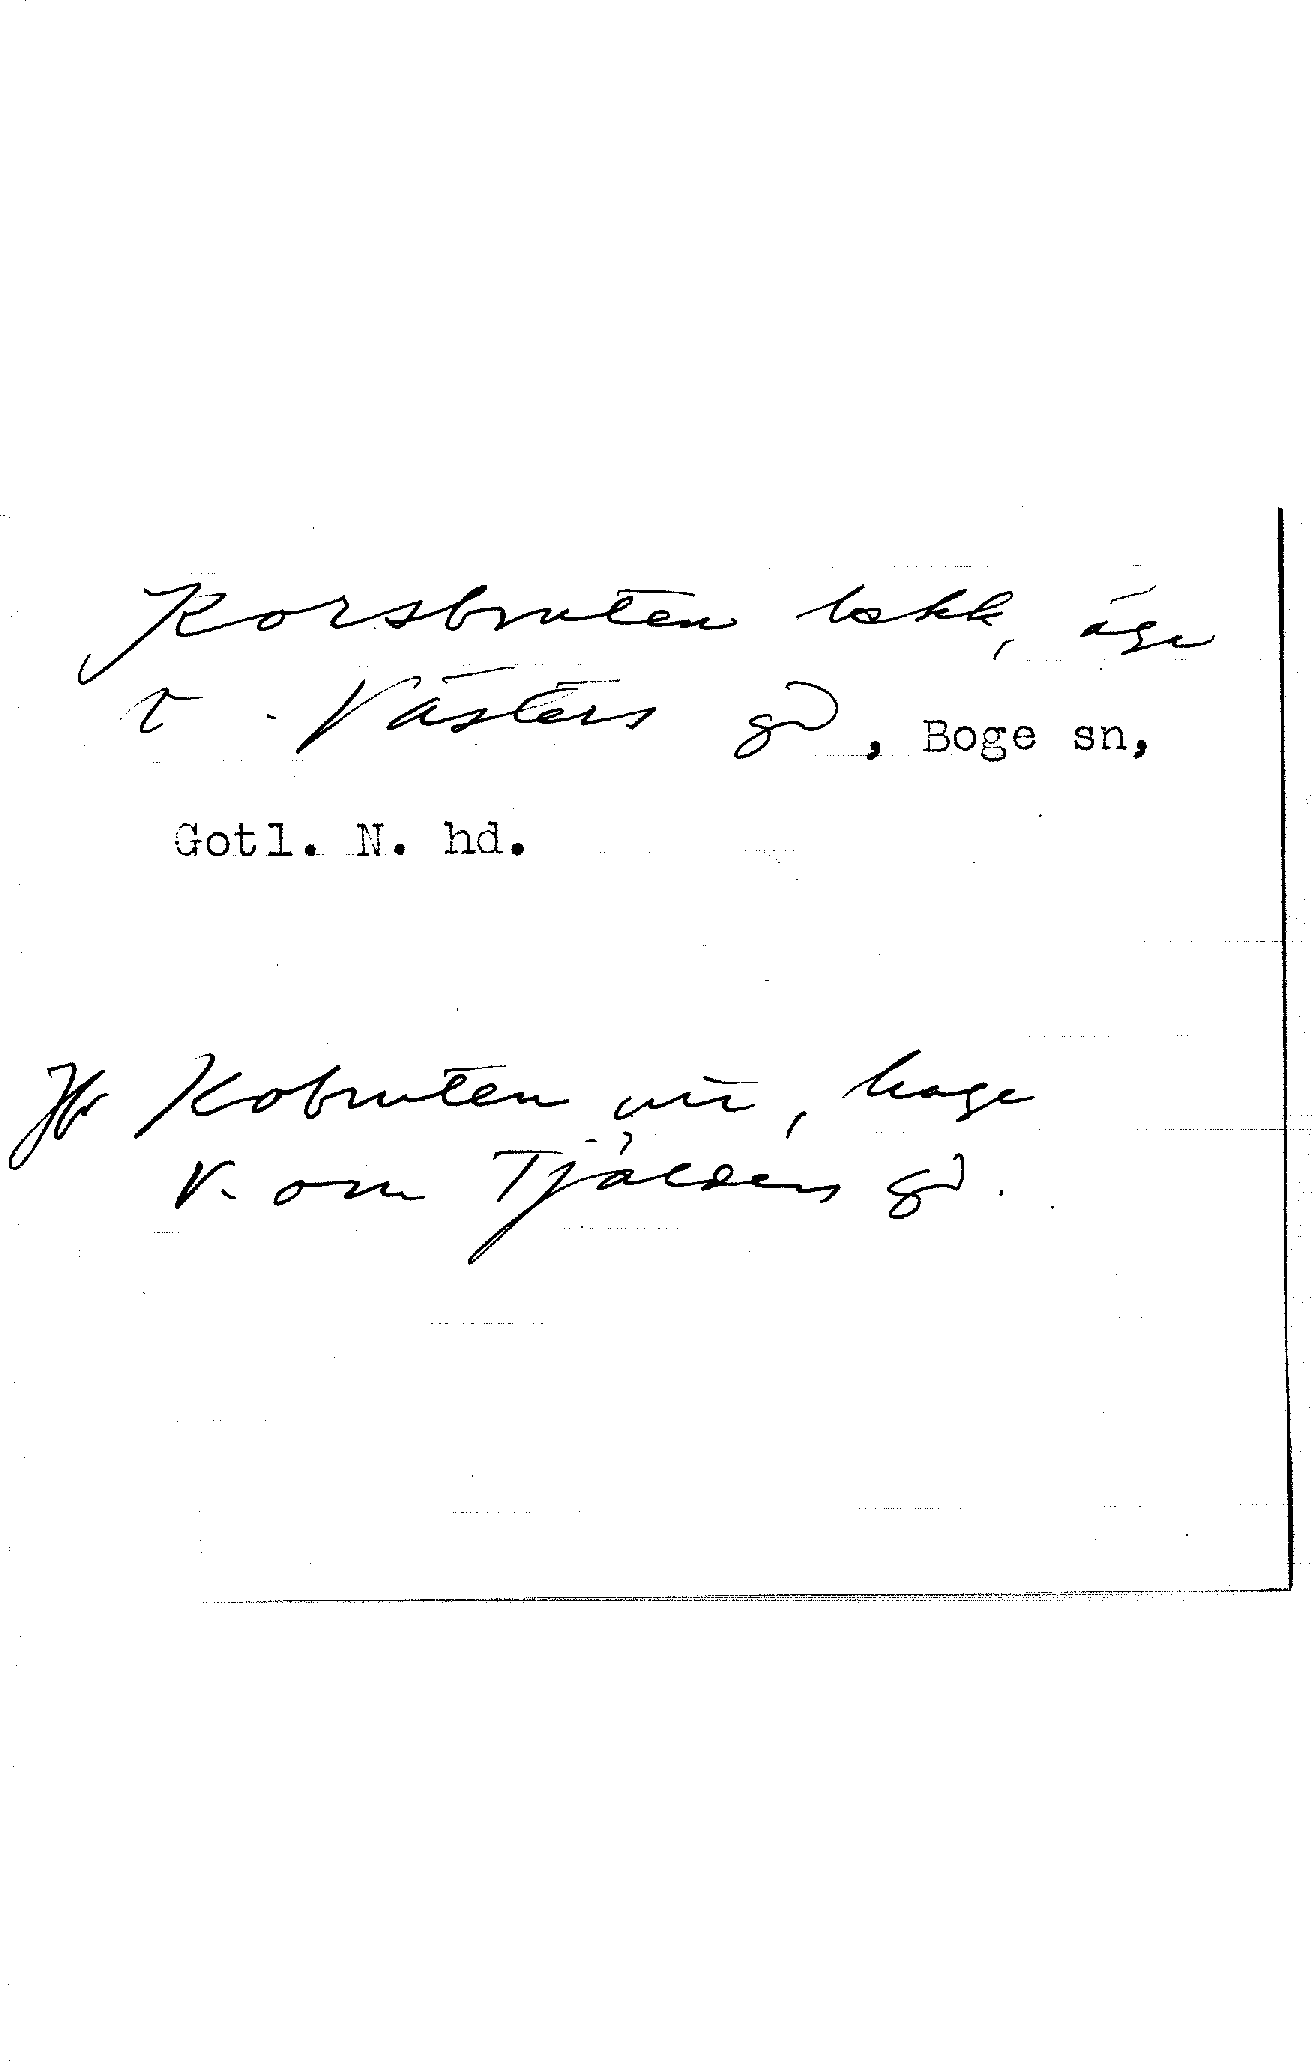 Korsbruten bskk, äga
t. Västers gd, Boge sn,
Gotl. N. hd.
Jfr Kobruten vir, hage
V. om Tjälders gd.